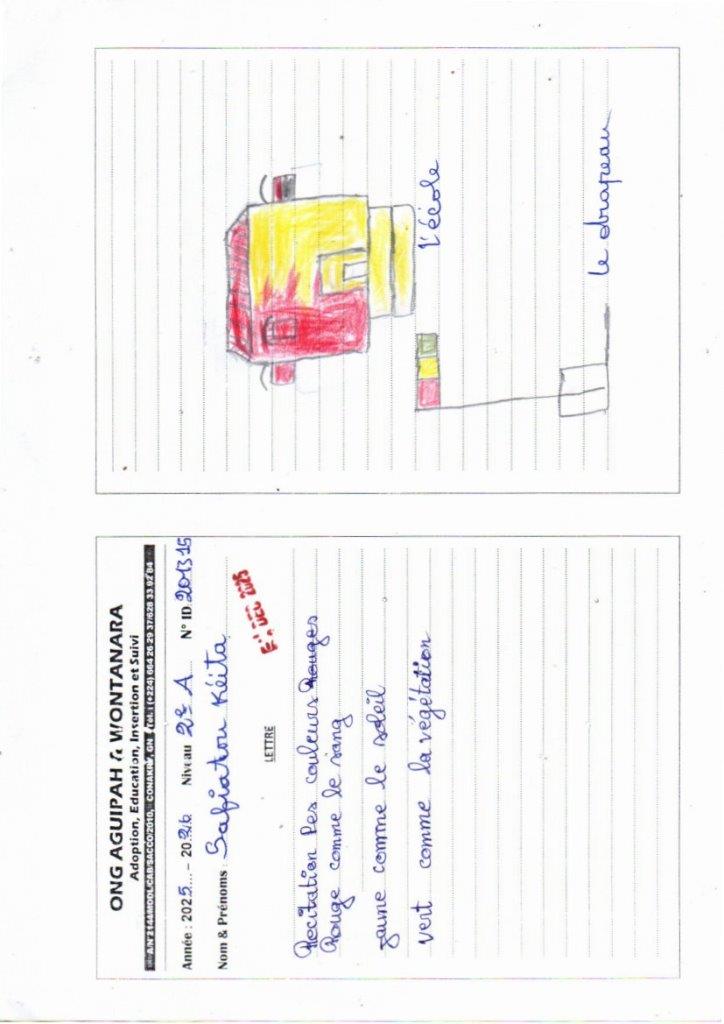 ONG AGUIPAH & WONTANARA
Adoption, Education, Insertion et Suivi
Année : 2025... - 2026 Niveau 2e A N° ID 201315
Nom & Prénoms : Safiatou Kéita
DEC 2025
LETTRE
Recitation Les couleurs Rouges
Rouge comme le sang
jaune comme le soleil
vert comme la végétation
l'école
le drapeau